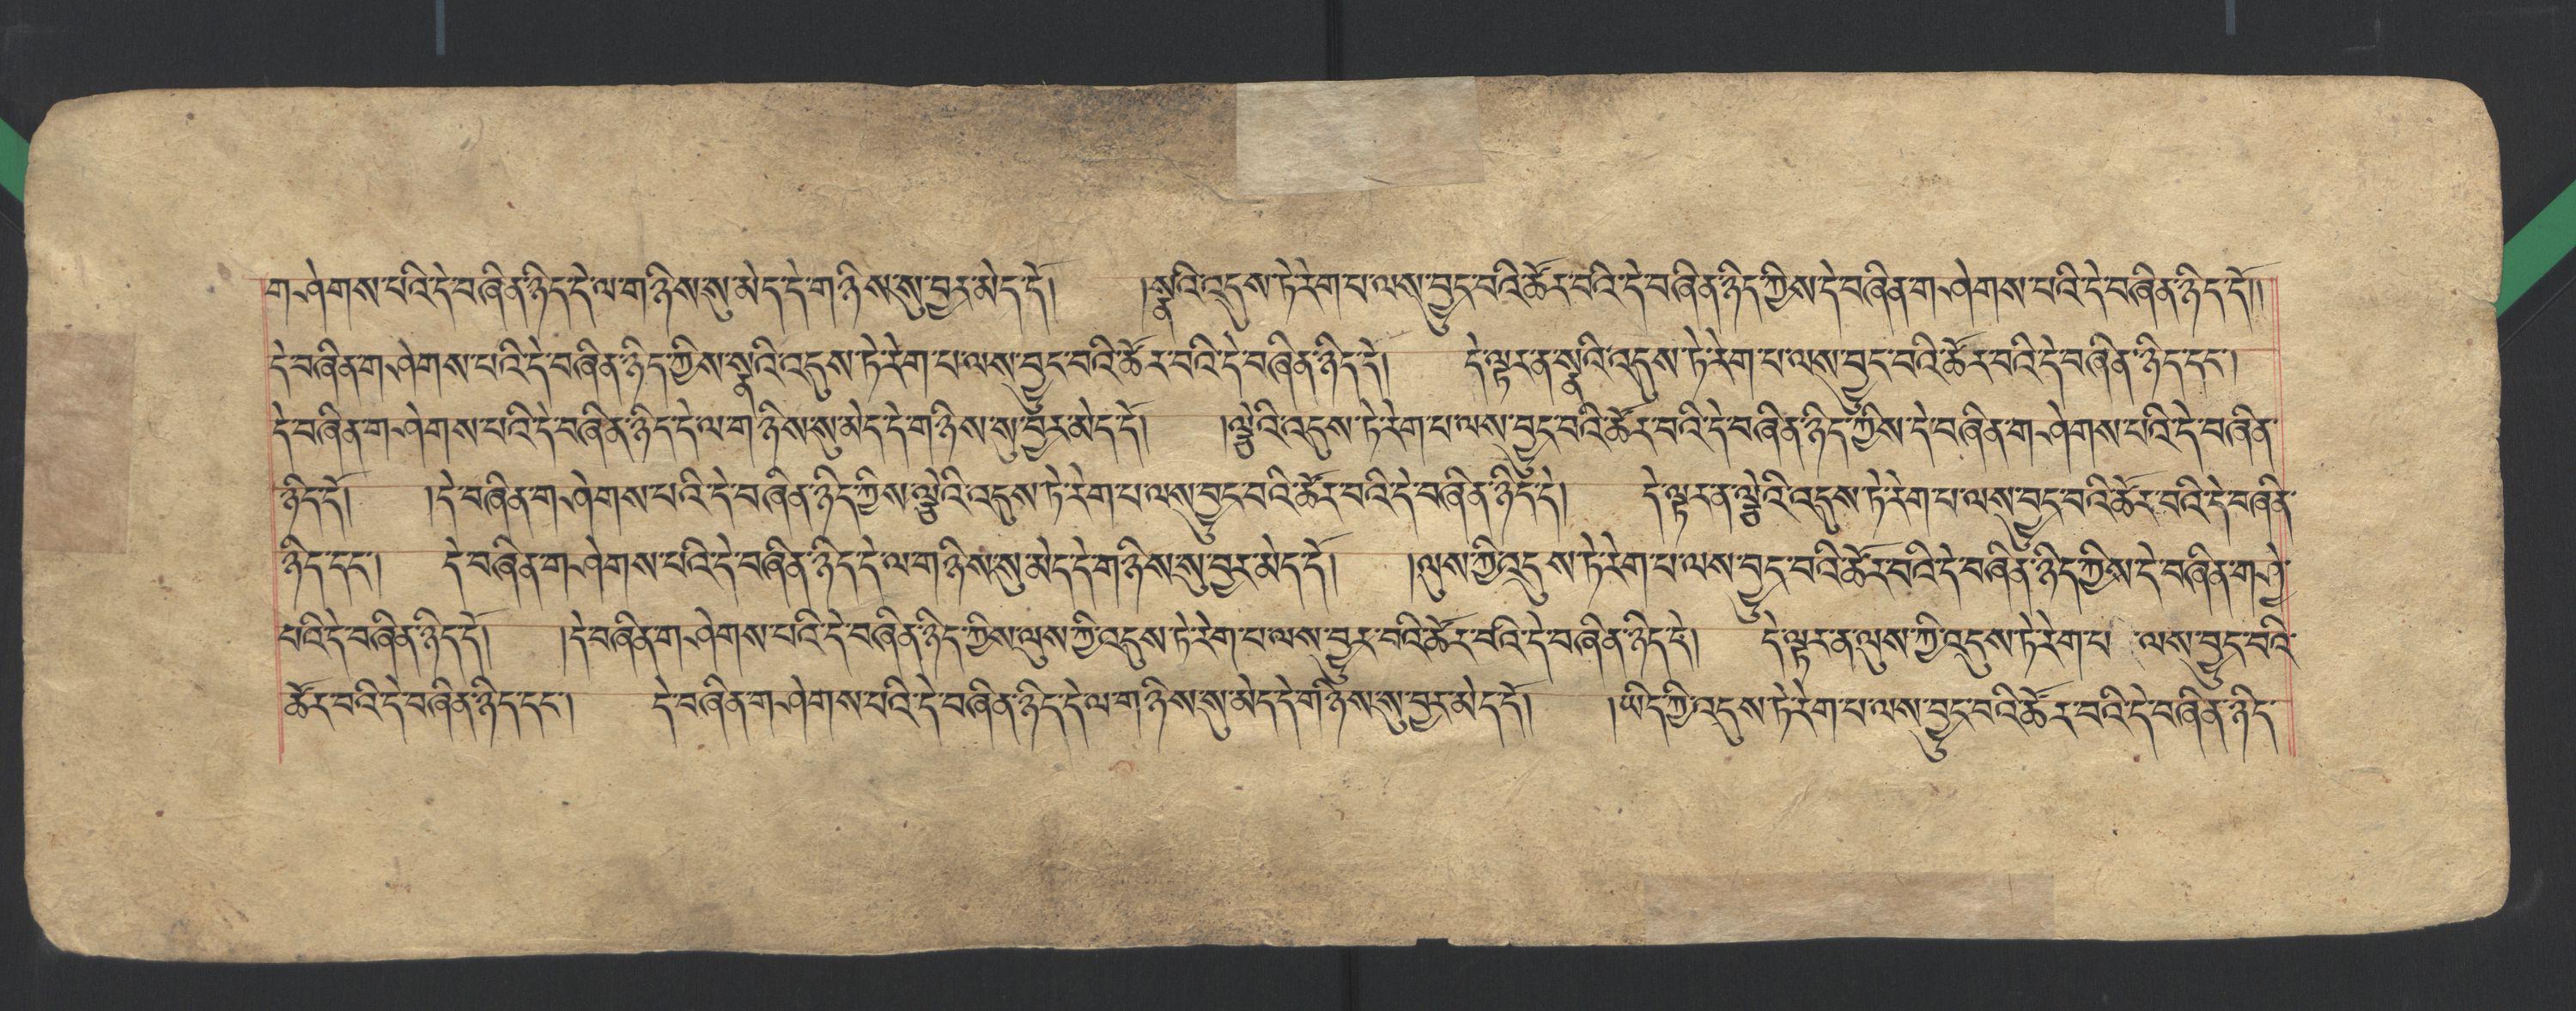 ག་ཤེགས་པའི་དེ་བཞིན་ཉིད་དེ་ལ་གཉིས་སུ་མེད་དེ་གཉིས་སུ་བྱར་མེད་དོ། །སྣའི་འདུས་ཏེ་རེག་པ་ལས་བྱུང་བའི་ཚོར་བའི་དེ་བཞིན་ཉིད་ཀྱིས་དེ་བཞིན་ག་ཤེགས་པའི་དེ་བཞིན་ཉིད་དོ།།
དེ་བཞིན་ག་ཤེགས་པའི་དེ་བཞིན་ཉིད་ཀྱིས་སྣའི་འདུས་ཏེ་རེག་པ་ལས་བྱུང་བའི་ཚོར་བའི་དེ་བཞིན་ཉིད་དེ། དེ་ལྟར་ན་སྣའི་འདུས་ཏེ་རེག་པ་ལས་བྱུང་བའི་ཚོར་བའི་དེ་བཞིན་ཉིད་དང་།
དེ་བཞིན་ག་ཤེགས་པའི་དེ་བཞིན་ཉིད་དེ་ལ་གཉིས་སུ་མེད་དེ་གཉིས་སུ་བྱར་མེད་དོ། །ལྕེའི་འདུས་ཏེ་རེག་པ་ལས་བྱུང་བའི་ཚོར་བའི་དེ་བཞིན་ཉིད་ཀྱིས་དེ་བཞིན་ག་ཤེགས་པའི་དེ་བཞིན་
ཉིད་དོ། །དེ་བཞིན་ག་ཤེགས་པའི་དེ་བཞིན་ཉིད་ཀྱིས་ལྕེའི་འདུས་ཏེ་རེག་པ་ལས་བྱུང་བའི་ཚོར་བའི་དེ་བཞིན་ཉིད་དེ། དེ་ལྟར་ན་ལྕེའི་འདུས་ཏེ་རེག་པ་ལས་བྱུང་བའི་ཚོར་བའི་དེ་བཞིན་
ཉིད་དང་། དེ་བཞིན་ག་ཤེགས་པའི་དེ་བཞིན་ཉིད་དེ་ལ་གཉིས་སུ་མེད་དེ་གཉིས་སུ་བྱར་མེད་དོ། །ལུས་ཀྱི་འདུས་ཏེ་རེག་པ་ལས་བྱུང་བའི་ཚོར་བའི་དེ་བཞིན་ཉིད་ཀྱིས་དེ་བཞིན་ག་ཤེ
པའི་དེ་བཞིན་ཉིད་དོ། །དེ་བཞིན་ག་ཤེགས་པའི་དེ་བཞིན་ཉིད་ཀྱིས་ལུས་ཀྱི་འདུས་ཏེ་རེག་པ་ལས་བྱུང་བའི་ཚོར་བའི་དེ་བཞིན་ཉིད་དེ། དེ་ལྟར་ན་ལུས་ཀྱི་འདུས་ཏེ་རེག་པ་ལས་བྱུང་བའི་
ཚོར་བའི་དེ་བཞིན་ཉིད་དང་། དེ་བཞིན་ག་ཤེགས་པའི་དེ་བཞིན་ཉིད་དེ་ལ་གཉིས་སུ་མེད་དེ་གཉིས་སུ་བྱར་མེད་དོ། །ཡིད་ཀྱི་འདུས་ཏེ་རེག་པ་ལས་བྱུང་བའི་ཚོར་བའི་དེ་བཞིན་ཉིད་